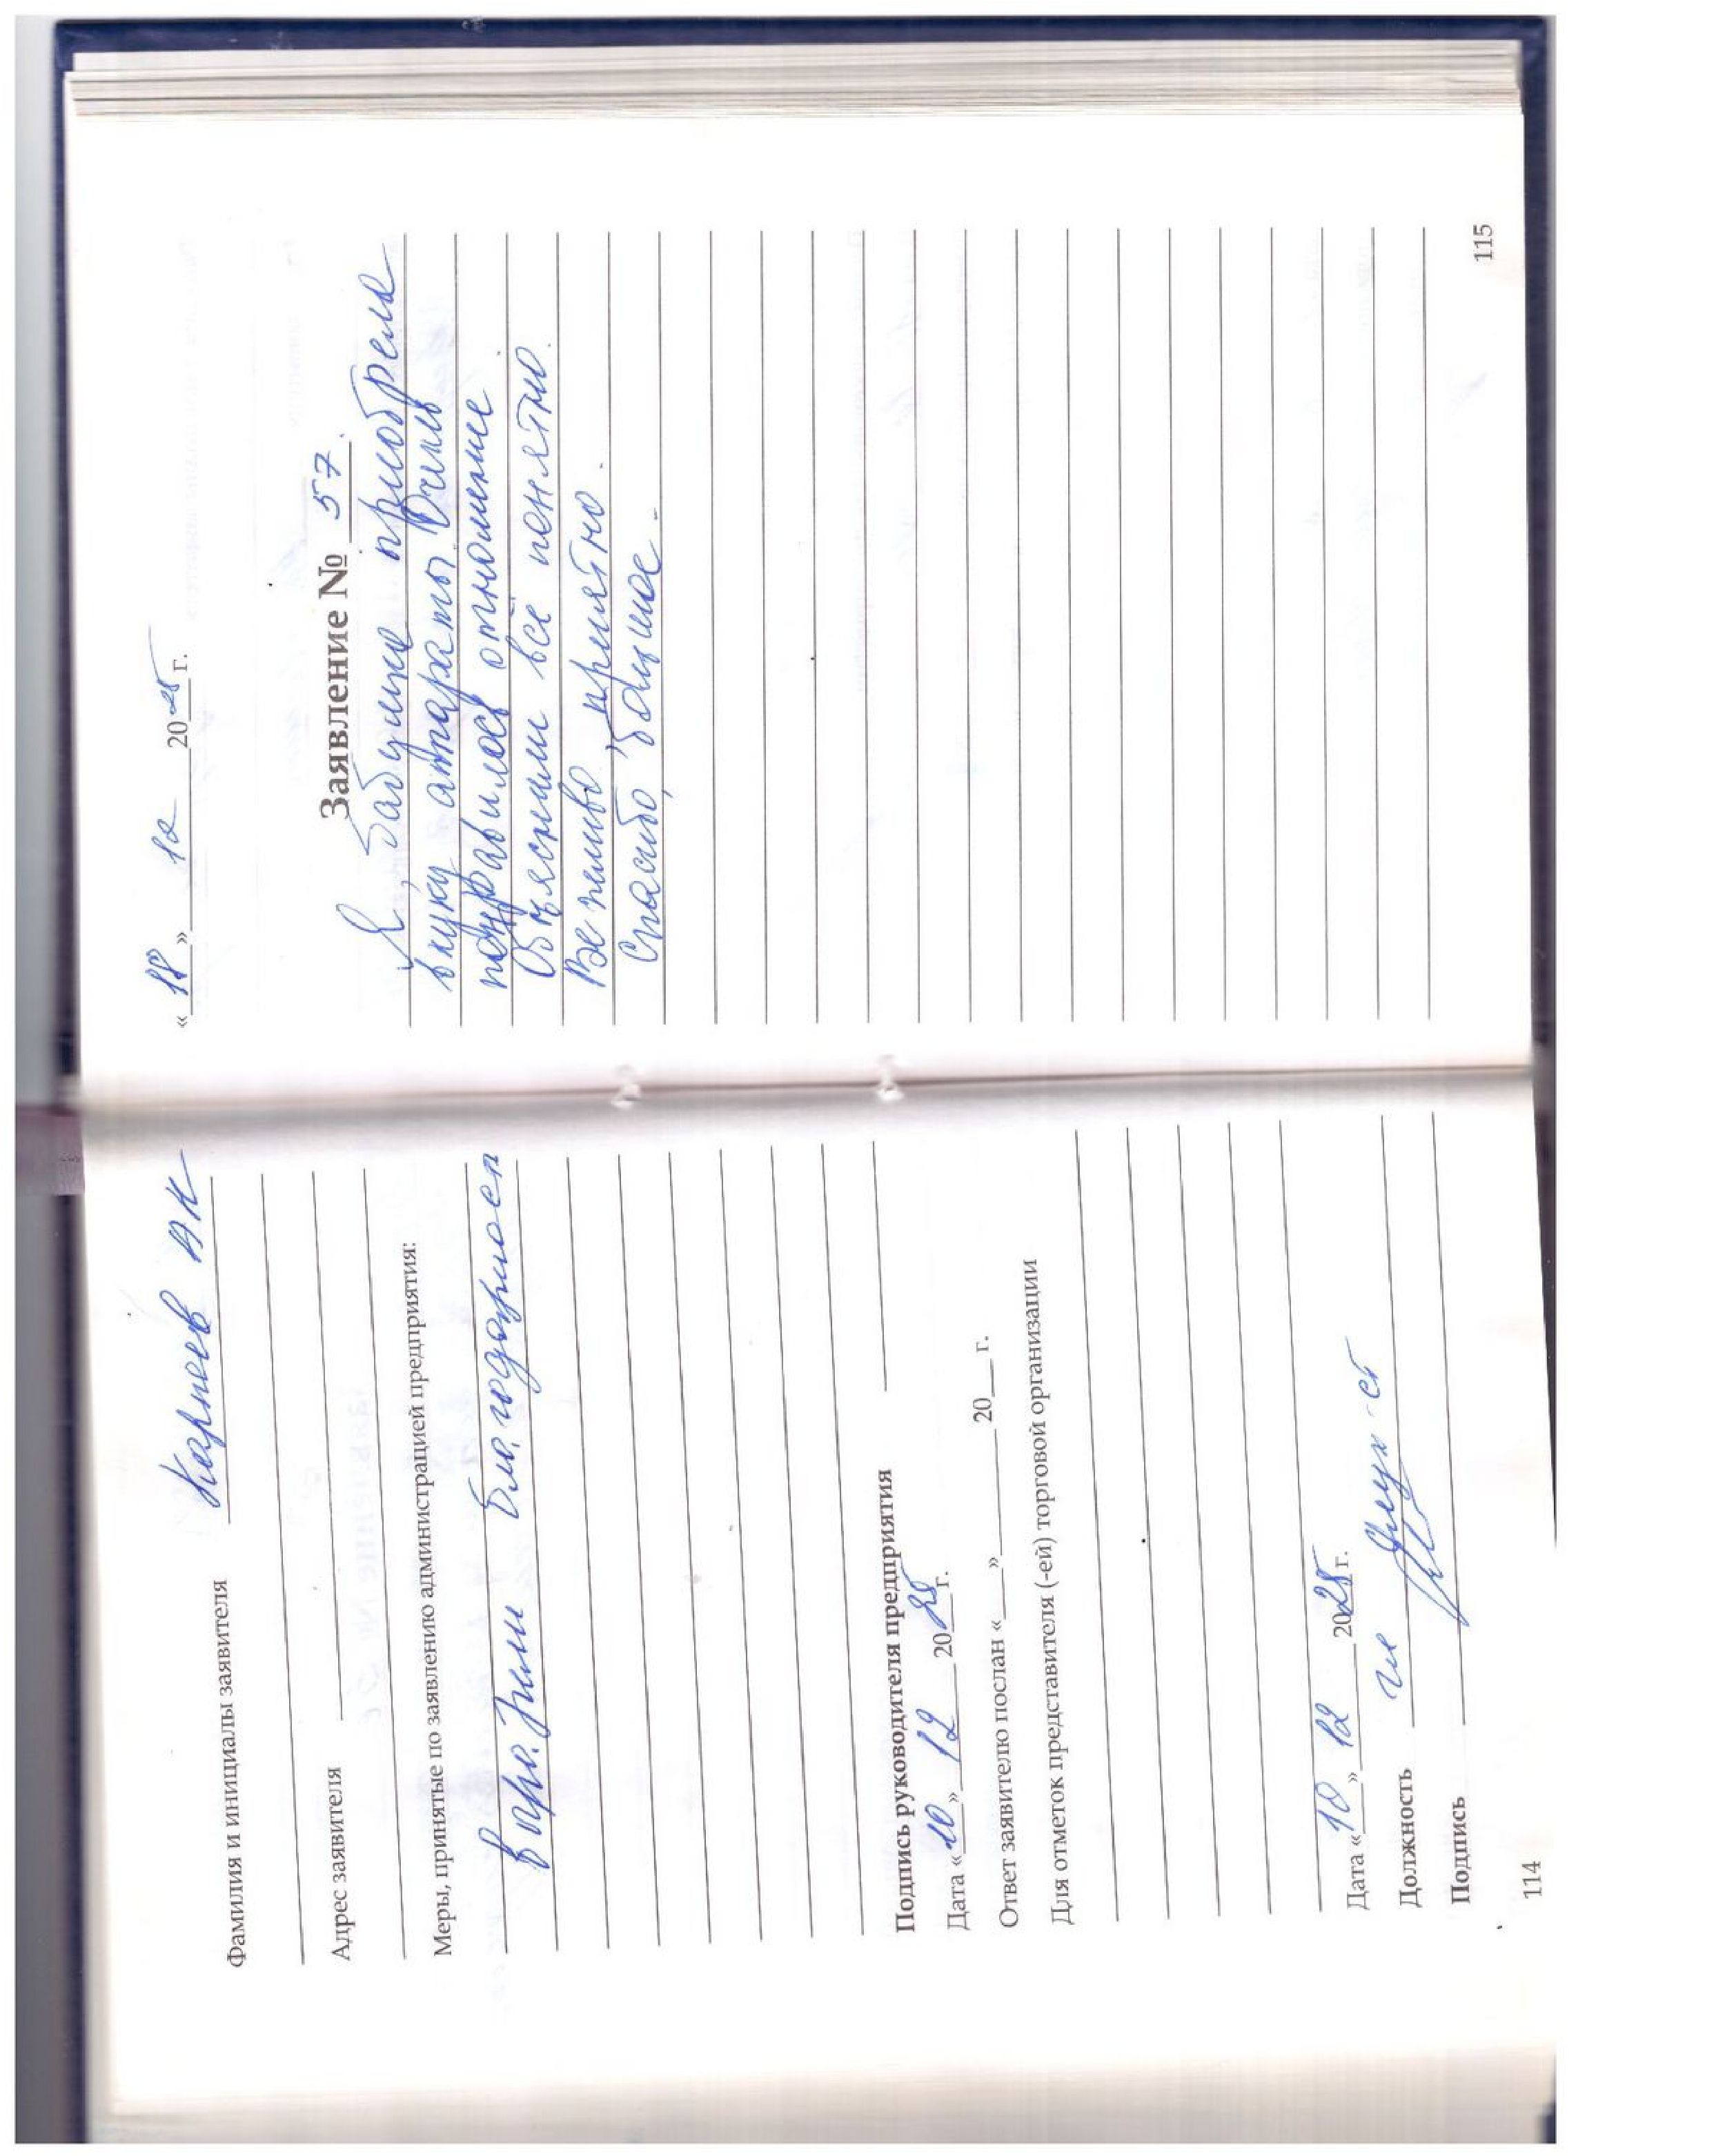 Фамилия и инициалы заявителя Карпеев АК
Адрес заявителя
Меры, принятые по заявлению администрацией предприятия:
Благодарност
Подпись руководителя предприятия
Дата «10» 12 2025 г.
Ответ заявителю послан «___»________ 20___ г.
Для отметок представителя (-ей) торговой организации
Дата «10» 12 2025 г.
Должность
Подпись
114
«18» 12 2025 г.
Заявление № 57
Я, бабушка приобрела
внуку аппараты. Очень
понравилось отношение
Объяснили всё понятно.
Вежливо, приятно.
Спасибо, большое.
115